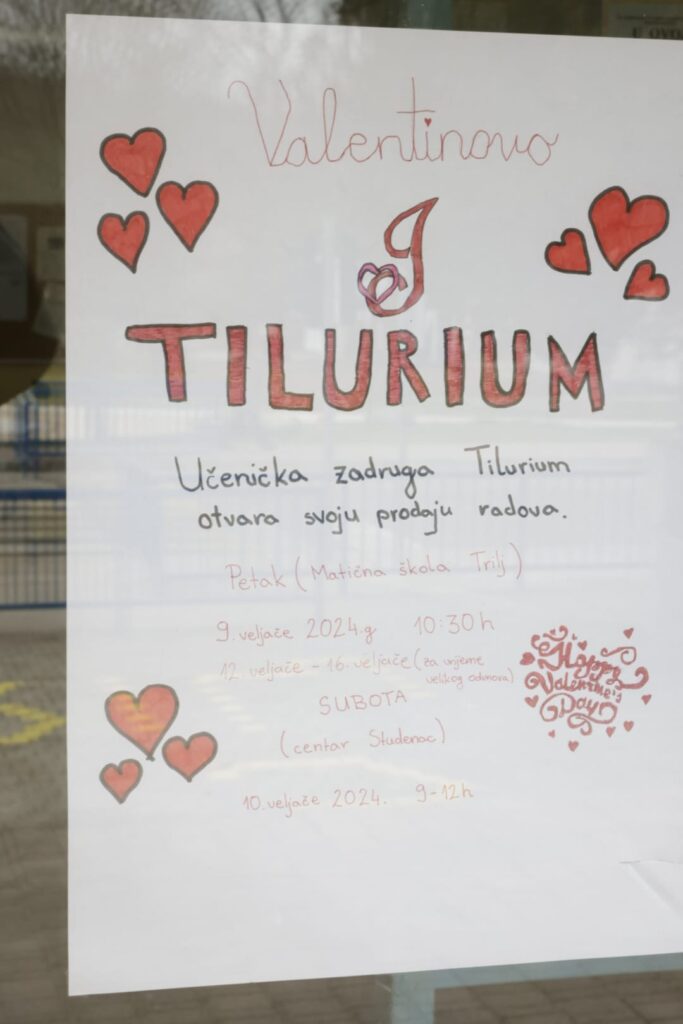 Valentinovo
I
TILURIUM
Učenička zadruga Tilurium
otvara svoju prodaju radova.
Petak (Matična škola Trilj)
9. veljače 2024.g 10:30h
12. veljače - 16. veljače (za vrijeme
velikog odmora)
SUBOTA
(centar Studenac)
10. veljače 2024. 9-12h
Happy
Valentine's
Day!